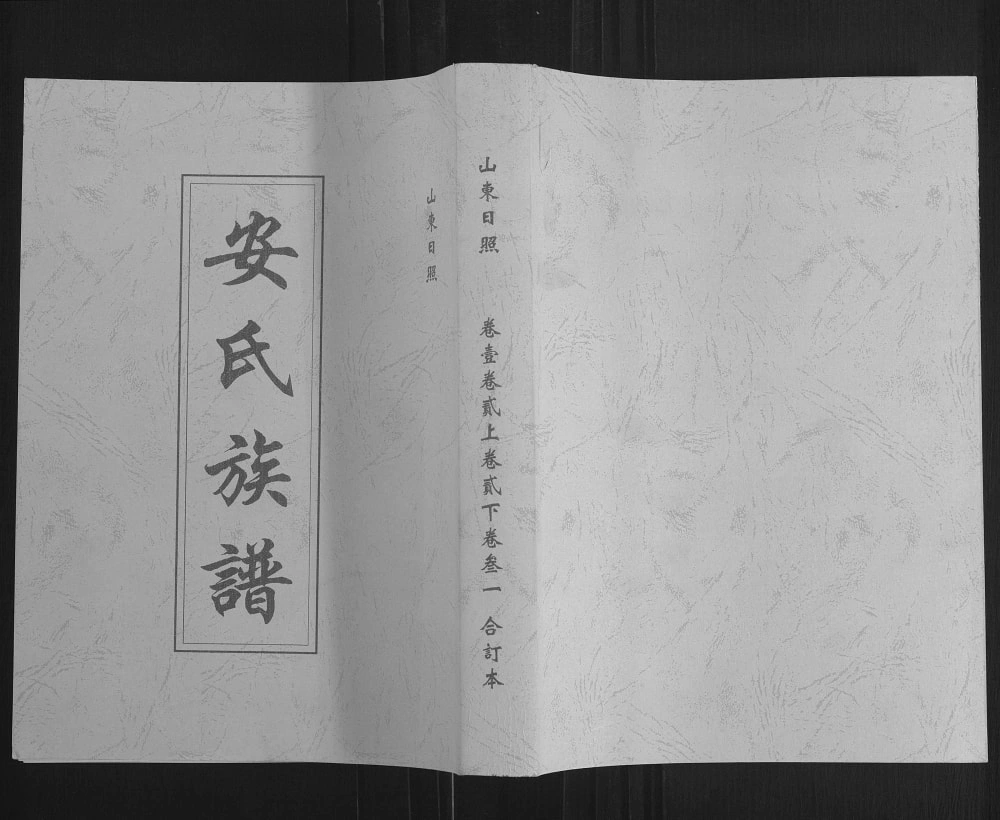 山東日照 卷壹卷貳上卷貳下卷叁一 合訂本
山東日照
安氏族譜